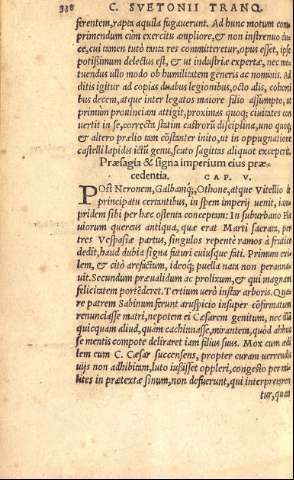 338 C. SVETONII TRANQ.
ferentem, rapta aquila fugauerunt. Ad hunc motum com
primendum cùm exercitu ampliore, & non instrenuo du
ce, cui tamen tutò tanta res committeretur, opus esset, ipse
potißimum delectus est, & ut industriæ expertæ, nec me
tuendus ullo modo ob humilitatem generis ac nominis. Ad
ditis igitur ad copias duabus legionibus, octo alis, cohorti
bus decem, atque inter legatos maiore filio assumpto, ut
primùm prouinciam attigit, proximas quoq; ciuitates con
uertit in se, correcta statim castrorũ disciplina, uno quoq;
& altero prælio tam cõstanter inito, ut in oppugnatione
castelli lapidis ictũ genu, scuto sagittas aliquot exceperit.
Præsagia & signa imperium eius præ-
cedentia. CAP. V.
POst Neronem, Galbamq;, Othone, atque Vitellio de
principatu certantibus, in spem imperij uenit, iam
pridem sibi per hæc ostenta conceptam: In suburbano Fla
uiorum quercus antiqua, quæ erat Marti sacrata, per
tres Vespasiæ partus, singulos repentè ramos à frutice
dedit, haud dubia signa futuri cuiusque fati. Primum exi
lem, & citò arefactum, ideoq; puella nata non perannu-
uit. Secundum præualidum ac prolixum, & qui magnam
felicitatem portẽderet. Tertium uerò instar arboris. Qua
re patrem Sabinum ferunt aruspicio insuper cõfirmatum
renunciasse matri, nepotem ei Cæsarem genitum, nec illam
quicquam aliud, quàm cachinnasse, mirantem, quòd adhuc
se mentis compote deliraret iam filius suus. Mox cum ædi
lem eum C. Cæsar succensens, propter curam uerrendis
uijs non adhibitam, luto iußisset oppleri, congesto per mi
lites in prætextæ sinum, non defuerunt, qui interpretaren
tur, quan